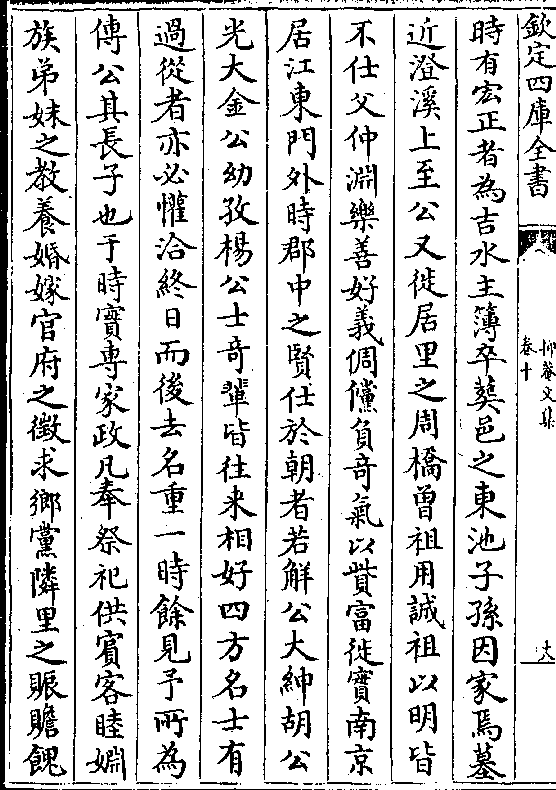 欽定四庫全書
抑菴文集
卷十
十八
時有宏正者為吉水主簿卒葬邑之東池子孫因家焉墓
近澄溪上至公又徙居里之周橋曾祖用誠祖以明皆
不仕父仲淵樂善好義倜儻負奇氣以貲富徙實南京
居江東門外時郡中之賢仕於朝者若解公大紳胡公
光大金公幼孜楊公士奇輩皆往来相好四方名士有
過從者亦必懽洽終日而後去名重一時餘見予所為
傳公其長子也于時實專家政凡奉祭祀供賓客睦婣
族弟妹之教養婚嫁官府之徵求鄉黨隣里之賑贍餽